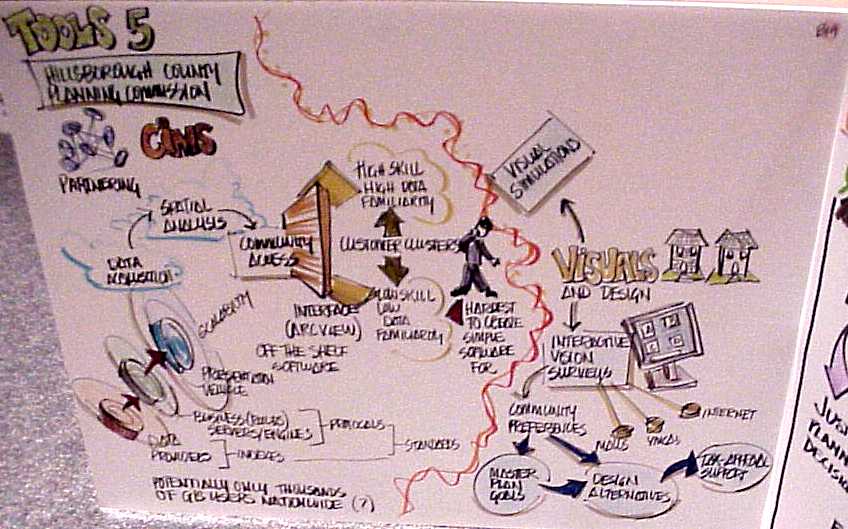 TOOLS 5
HILLSBOROUGH COUNTY
PLANNING COMMISSION
PARTNERING
SPATIAL
ANALYSIS
DATA
COMMUNITY
ACCESS
HIGH SKILL
HIGH DATA
FAMILIARITY
CUSTOMER CLUSTERS
LOW SKILL
LOW
DATA
FAMILIARITY
INTERFACE
(ARCVIEW)
OFF THE SHELF
SOFTWARE
HARDEST
TO CREATE
SIMPLE
SOFTWARE
FOR
SCALABILITY
PRESENTATION
VEHICLE
BUSINESS (RULES)
SERVERS/ENGINES
PROTOCOLS
DATA
PROVIDERS
INDICES
STANDARDS
POTENTIALLY ONLY THOUSANDS
OF GIS USERS NATIONWIDE (?)
VISUAL
SIMULATIONS
VISUALS
AND DESIGN
INTERACTIVE
VISION
SURVEYS
COMMUNITY
PREFERENCES
MALLS
YMCAS
INTERNET
MASTER
PLAN
GOALS
DESIGN
ALTERNATIVES
SUPPORT
PLANN
DECISI